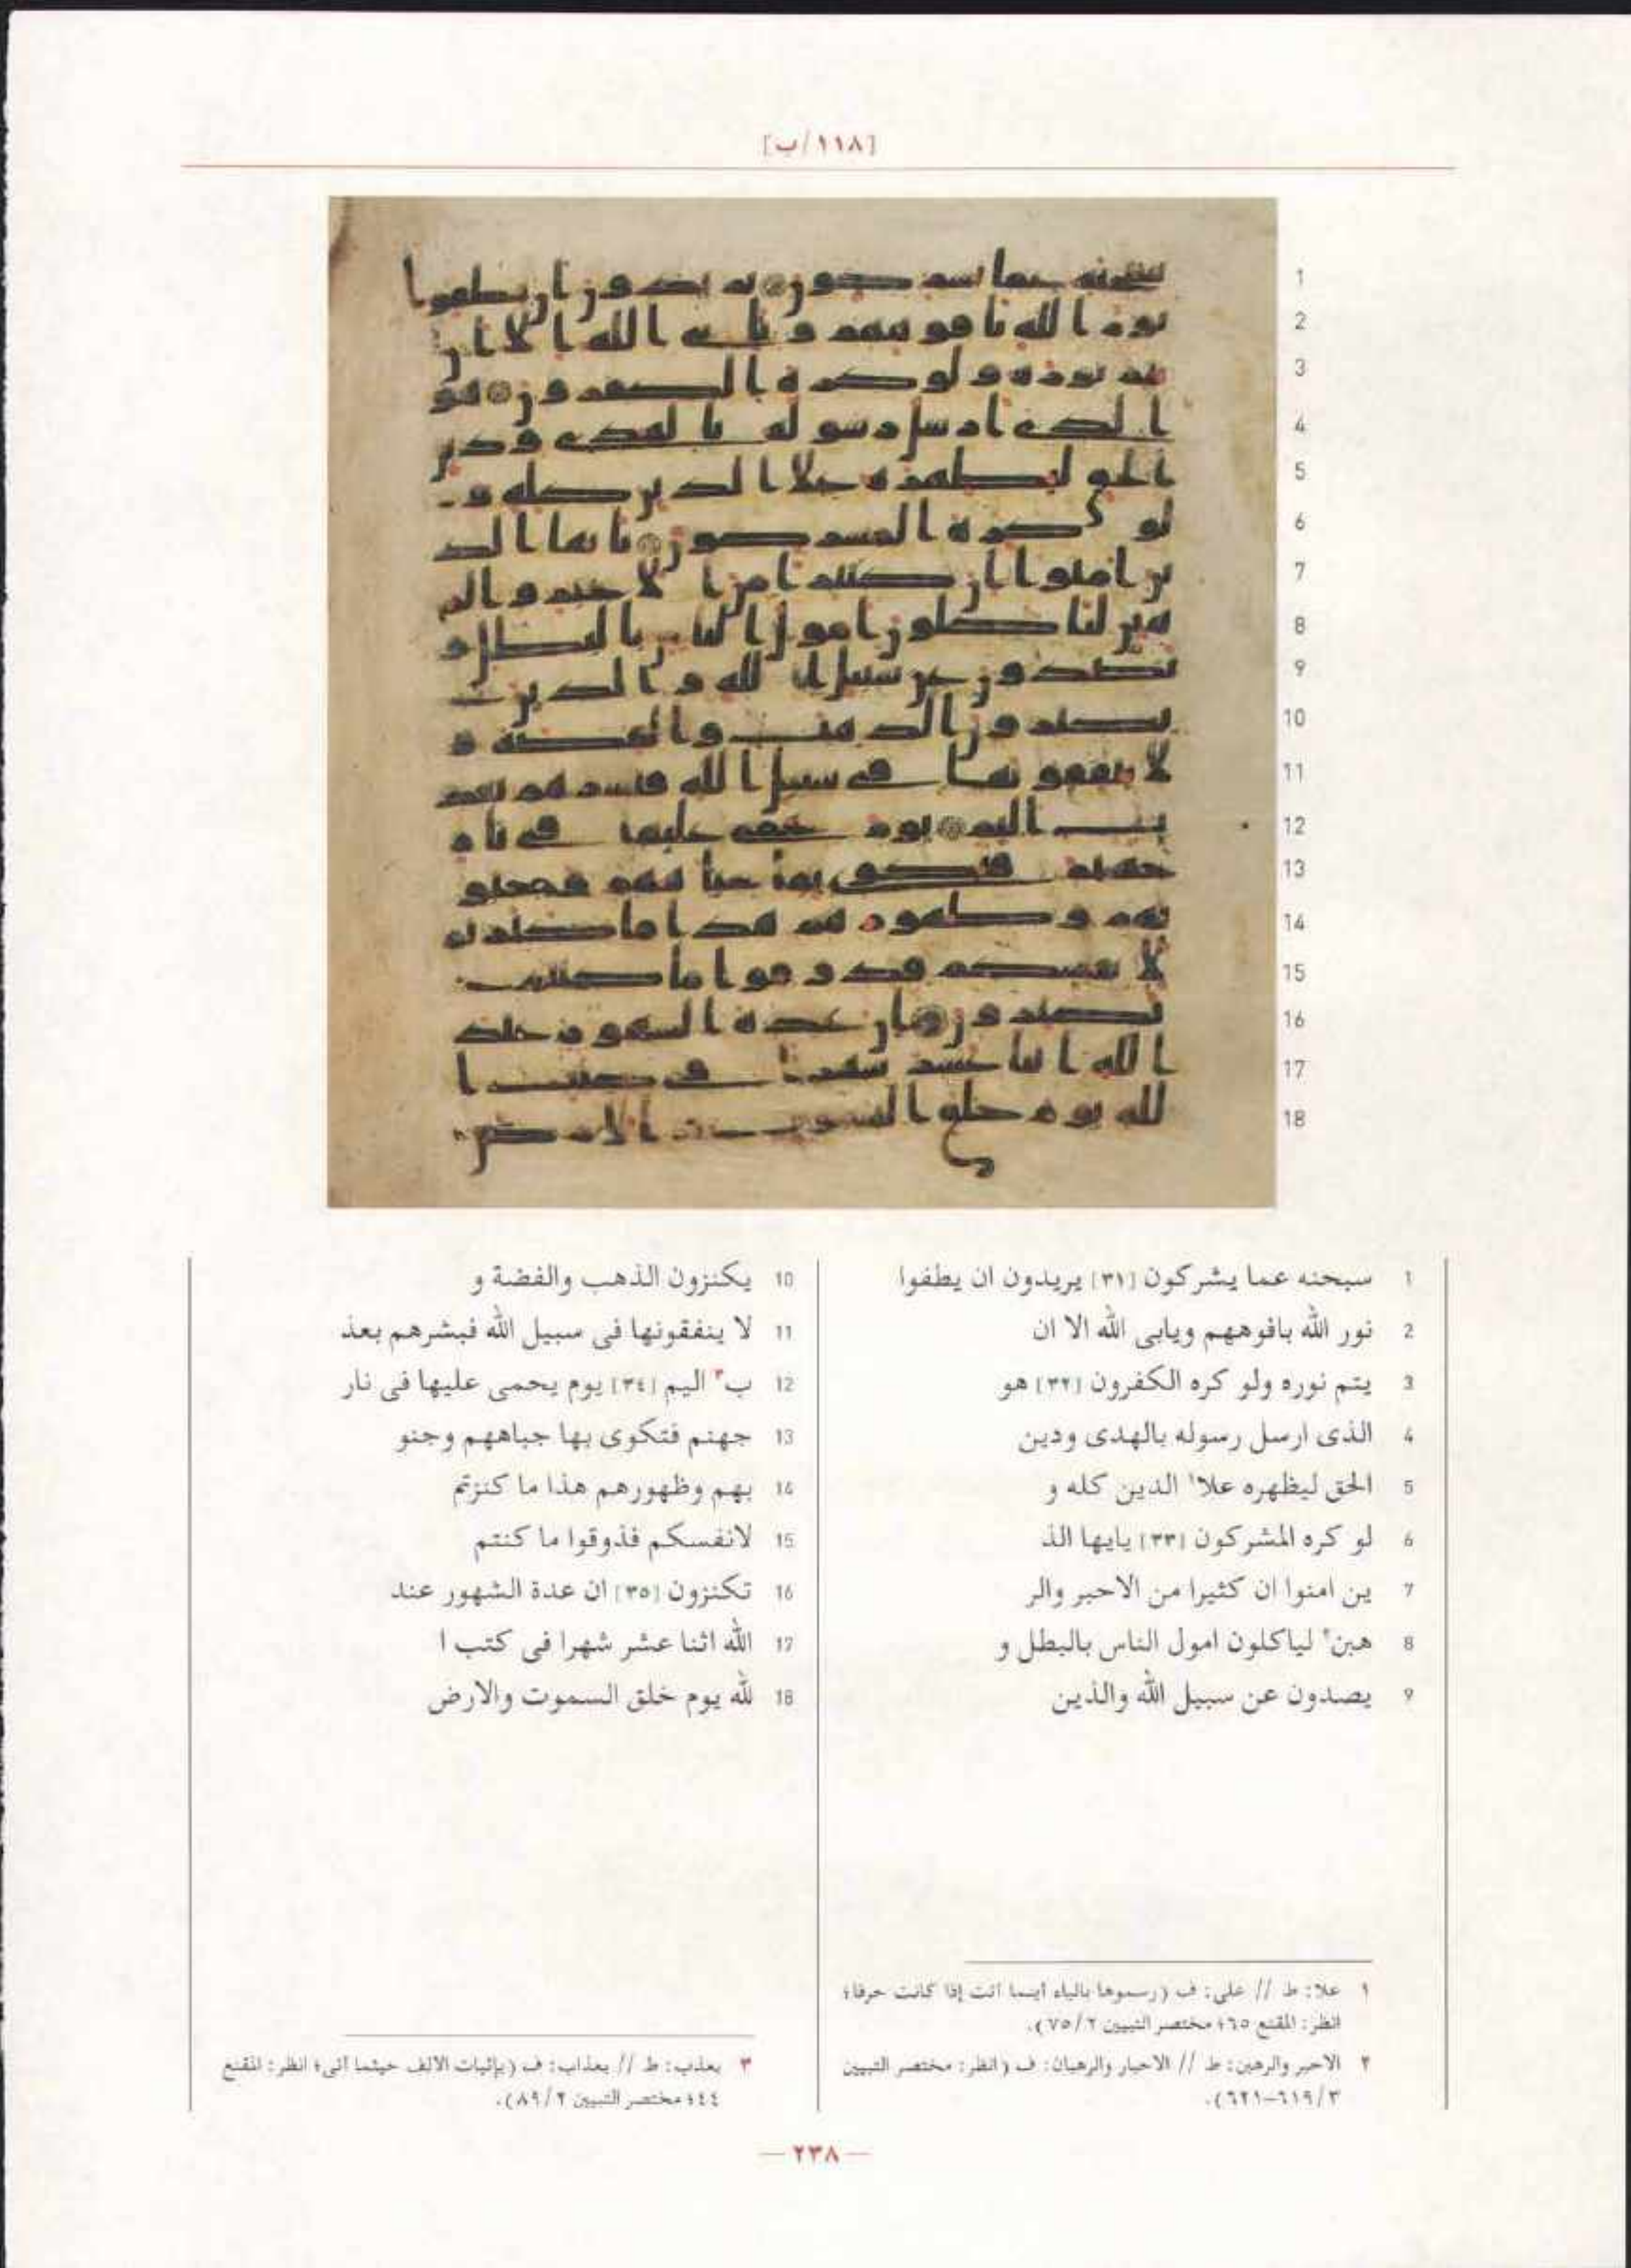 [١١٨/ب]
1 سبحنه عما يشركون [٣١] يريدون ان يطفوا
2 نور الله بافوههم ويابى الله الا ان
3 يتم نوره ولو كره الكفرون [٣٢] هو
4 الذى ارسل رسوله بالهدى ودين
5 الحق ليظهره علا١ الدين كله و
6 لو كره المشركون [٣٣] يايها الذ
7 ين امنوا ان كثيرا من الاحبر والر
8 هبن٢ لياكلون امول الناس بالبطل و
9 يصدون عن سبيل الله والذين
10 يكنزون الذهب والفضة و
11 لا ينفقونها فى سبيل الله فبشرهم بعذ
12 ب٣ اليم [٣٤] يوم يحمى عليها فى نار
13 جهنم فتكوى بها جباههم وجنو
14 بهم وظهورهم هذا ما كنزتم
15 لانفسكم فذوقوا ما كنتم
16 تكنزون [٣٥] ان عدة الشهور عند
17 الله اثنا عشر شهرا فى كتب ا
18 لله يوم خلق السموت والارض
١ علا: ط // على: ف (رسموها بالياء أينما أتت إذا كانت حرفا؛
انظر: المقنع ٦٥؛ مختصر التبيين ٧٥/٢).
٢ الاحبر والرهبن: ط // الاحبار والرهبان: ف (انظر: مختصر التبيين
٦١٩/٣-٦٢١).
٣ بعذب: ط // بعذاب: ف (بإثبات الالف حيثما أتى؛ انظر: المقنع
٤٤؛ مختصر التبيين ٨٩/٢).
— ٢٣٨ —